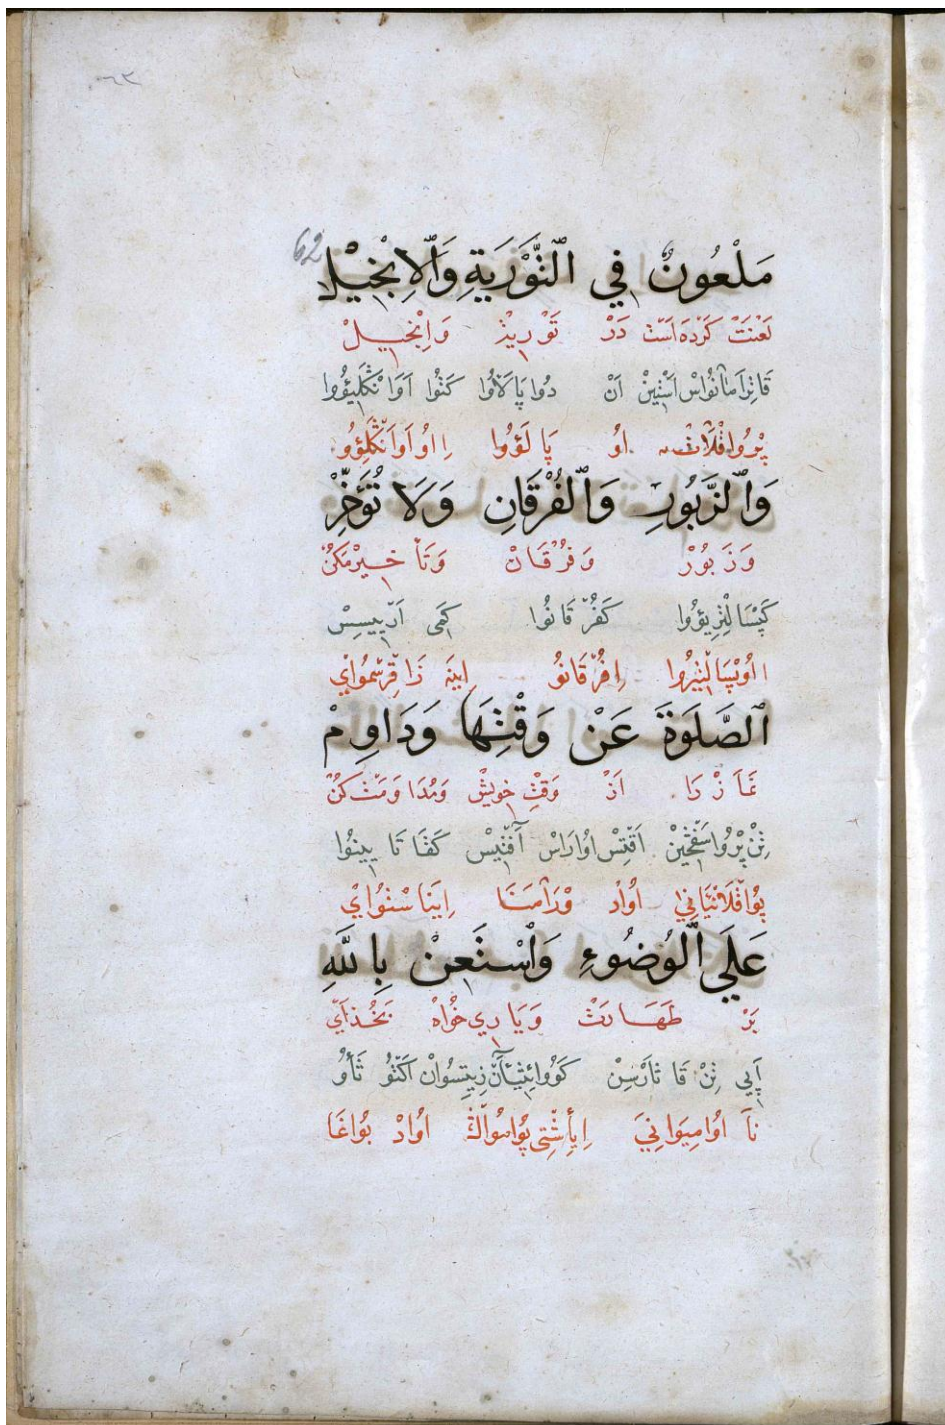 ٦٢
62
مَلْعُونٌ فِي ٱلتَّوْرَيةِ وَٱلْاِنْجِيْلِ
لَعْنَتْ كَرْدَه اَسْتْ دَرْ تَوْرِيتْ وَاِنْجِيلْ
قَاتِرَامَانُواسْ اَسْتِينْ اَنْ دُوا پَالَاوُا كَتُوا اَوَانْكَلِيؤُوا
پْرُوافْلَاتْ اوُ پَالَؤُوا ااوُ اَوَانْكَلِؤُو
وَٱلزَّبُورِ وَٱلْفُرْقَانِ وَلَا تُؤَخِّرْ
وَزَبُورْ وَفُرْقَانْ وَتَأخِيرْ مَكُنْ
كَپْسَالْتِرِيؤُوا كَفُرْقَانُوا كَمِى اَرْپِيسِسْ
ااوُپْسَالْتِيرُوا اِفُرْقَانوُ اِينَه زَاقِرْسْمُوايْ
ٱلصَّلَوةَ عَنْ وَقْتِهَا وَدَاوِمْ
نَمَازْ رَا اَزْ وَقْتِ خويشْ وَمُدَاوَمَتْ كُنْ
تِنْ پْرُواسَفْخِينْ اَقْتِسْ اوُارَاسْ اَفْتِيسْ كَفَاتَا يِينُوا
پوُافْلَانْيَانِي اوُادْ وْرَامَنَا اِينَاسْتُوايْ
عَلَي ٱلْوُضُوءِ وَٱسْتَعِنْ بِاللّٰهِ
بَرْ طَهَارَتْ وَيَارِي خُواهْ بَخُذَايْ
اَپِي تِنْ قَاثَارْسِنْ كَوُوائِيثِيَانْ زِيتِسُوانْ اَكْتُو ثَاوُ
نَآ اوُامِيوَانِيَ اِيأِشْتِى پوُاسُوالْتْ اوُادْ بوُاغَا